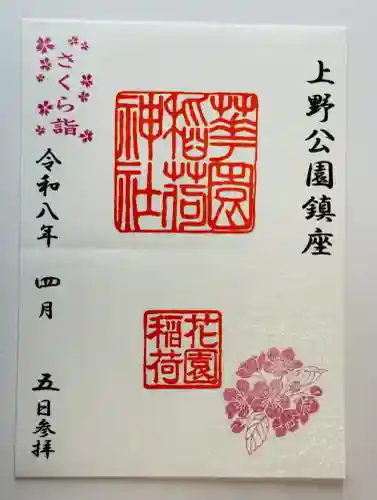 上野公園鎮座
華園
稲荷
神社
花園
稲荷
さくら詣
令和八年 四月 五日参拝